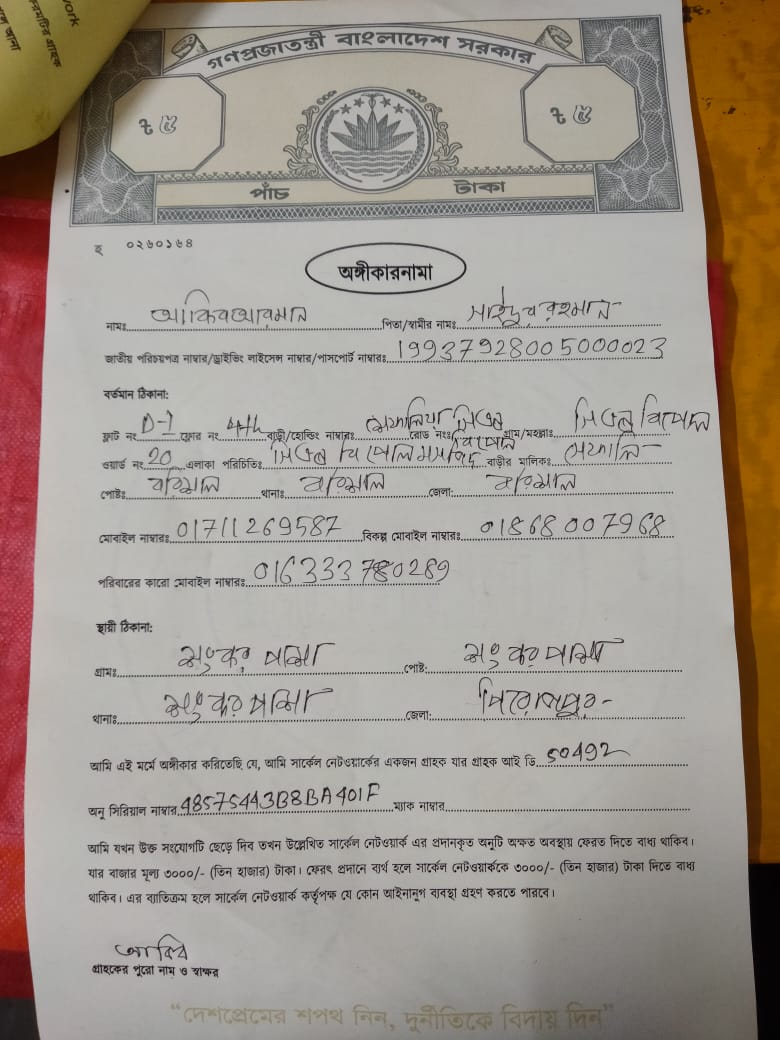 work
গণপ্রজাতন্ত্রী বাংলাদেশ সরকার
৳ ৫ ৳ ৫
পাঁচ টাকা
হ ০২৬০১৬৪
অঙ্গীকারনামা
নামঃ আকিব আরমান পিতা/স্বামীর নামঃ সাইদুর রহমান
জাতীয় পরিচয়পত্র নাম্বার/ড্রাইভিং লাইসেন্স নাম্বার/পাসপোর্ট নাম্বারঃ 19937928005000023
বর্তমান ঠিকানা:
ফ্লাট নং D-1 ফ্লোর নং 4th বাড়ী/হোল্ডিং নাম্বারঃ রোড নংঃ গ্রাম/মহল্লাঃ
ওয়ার্ড নং 20 এলাকা পরিচিতিঃ বাড়ীর মালিকঃ
পোষ্টঃ বরিশাল থানাঃ বরিশাল জেলা: বরিশাল
মোবাইল নাম্বারঃ 01711269587 বিকল্প মোবাইল নাম্বারঃ 01868007968
পরিবারের কারো মোবাইল নাম্বারঃ 016333780289
স্থায়ী ঠিকানা:
গ্রামঃ শংকর পাশা পোষ্ট: শংকর পাশা
থানাঃ শংকর পাশা জেলা: পিরোজপুর-
আমি এই মর্মে অঙ্গীকার করিতেছি যে, আমি সার্কেল নেটওয়ার্কের একজন গ্রাহক যার গ্রাহক আই ডি 50492
অনু সিরিয়াল নাম্বার 48575443B8BA401F ম্যাক নাম্বার
আমি যখন উক্ত সংযোগটি ছেড়ে দিব তখন উল্লেখিত সার্কেল নেটওয়ার্ক এর প্রদানকৃত অনুটি অক্ষত অবস্থায় ফেরত দিতে বাধ্য থাকিব।
যার বাজার মূল্য ৩০০০/- (তিন হাজার) টাকা। ফেরৎ প্রদানে ব্যর্থ হলে সার্কেল নেটওয়ার্ককে ৩০০০/- (তিন হাজার) টাকা দিতে বাধ্য
থাকিব। এর ব্যতিক্রম হলে সার্কেল নেটওয়ার্ক কর্তৃপক্ষ যে কোন আইনানুগ ব্যবস্থা গ্রহণ করতে পারবে।
আকিব
গ্রাহকের পুরো নাম ও স্বাক্ষর
“দেশপ্রেমের শপথ নিন, দুর্নীতিকে বিদায় দিন”